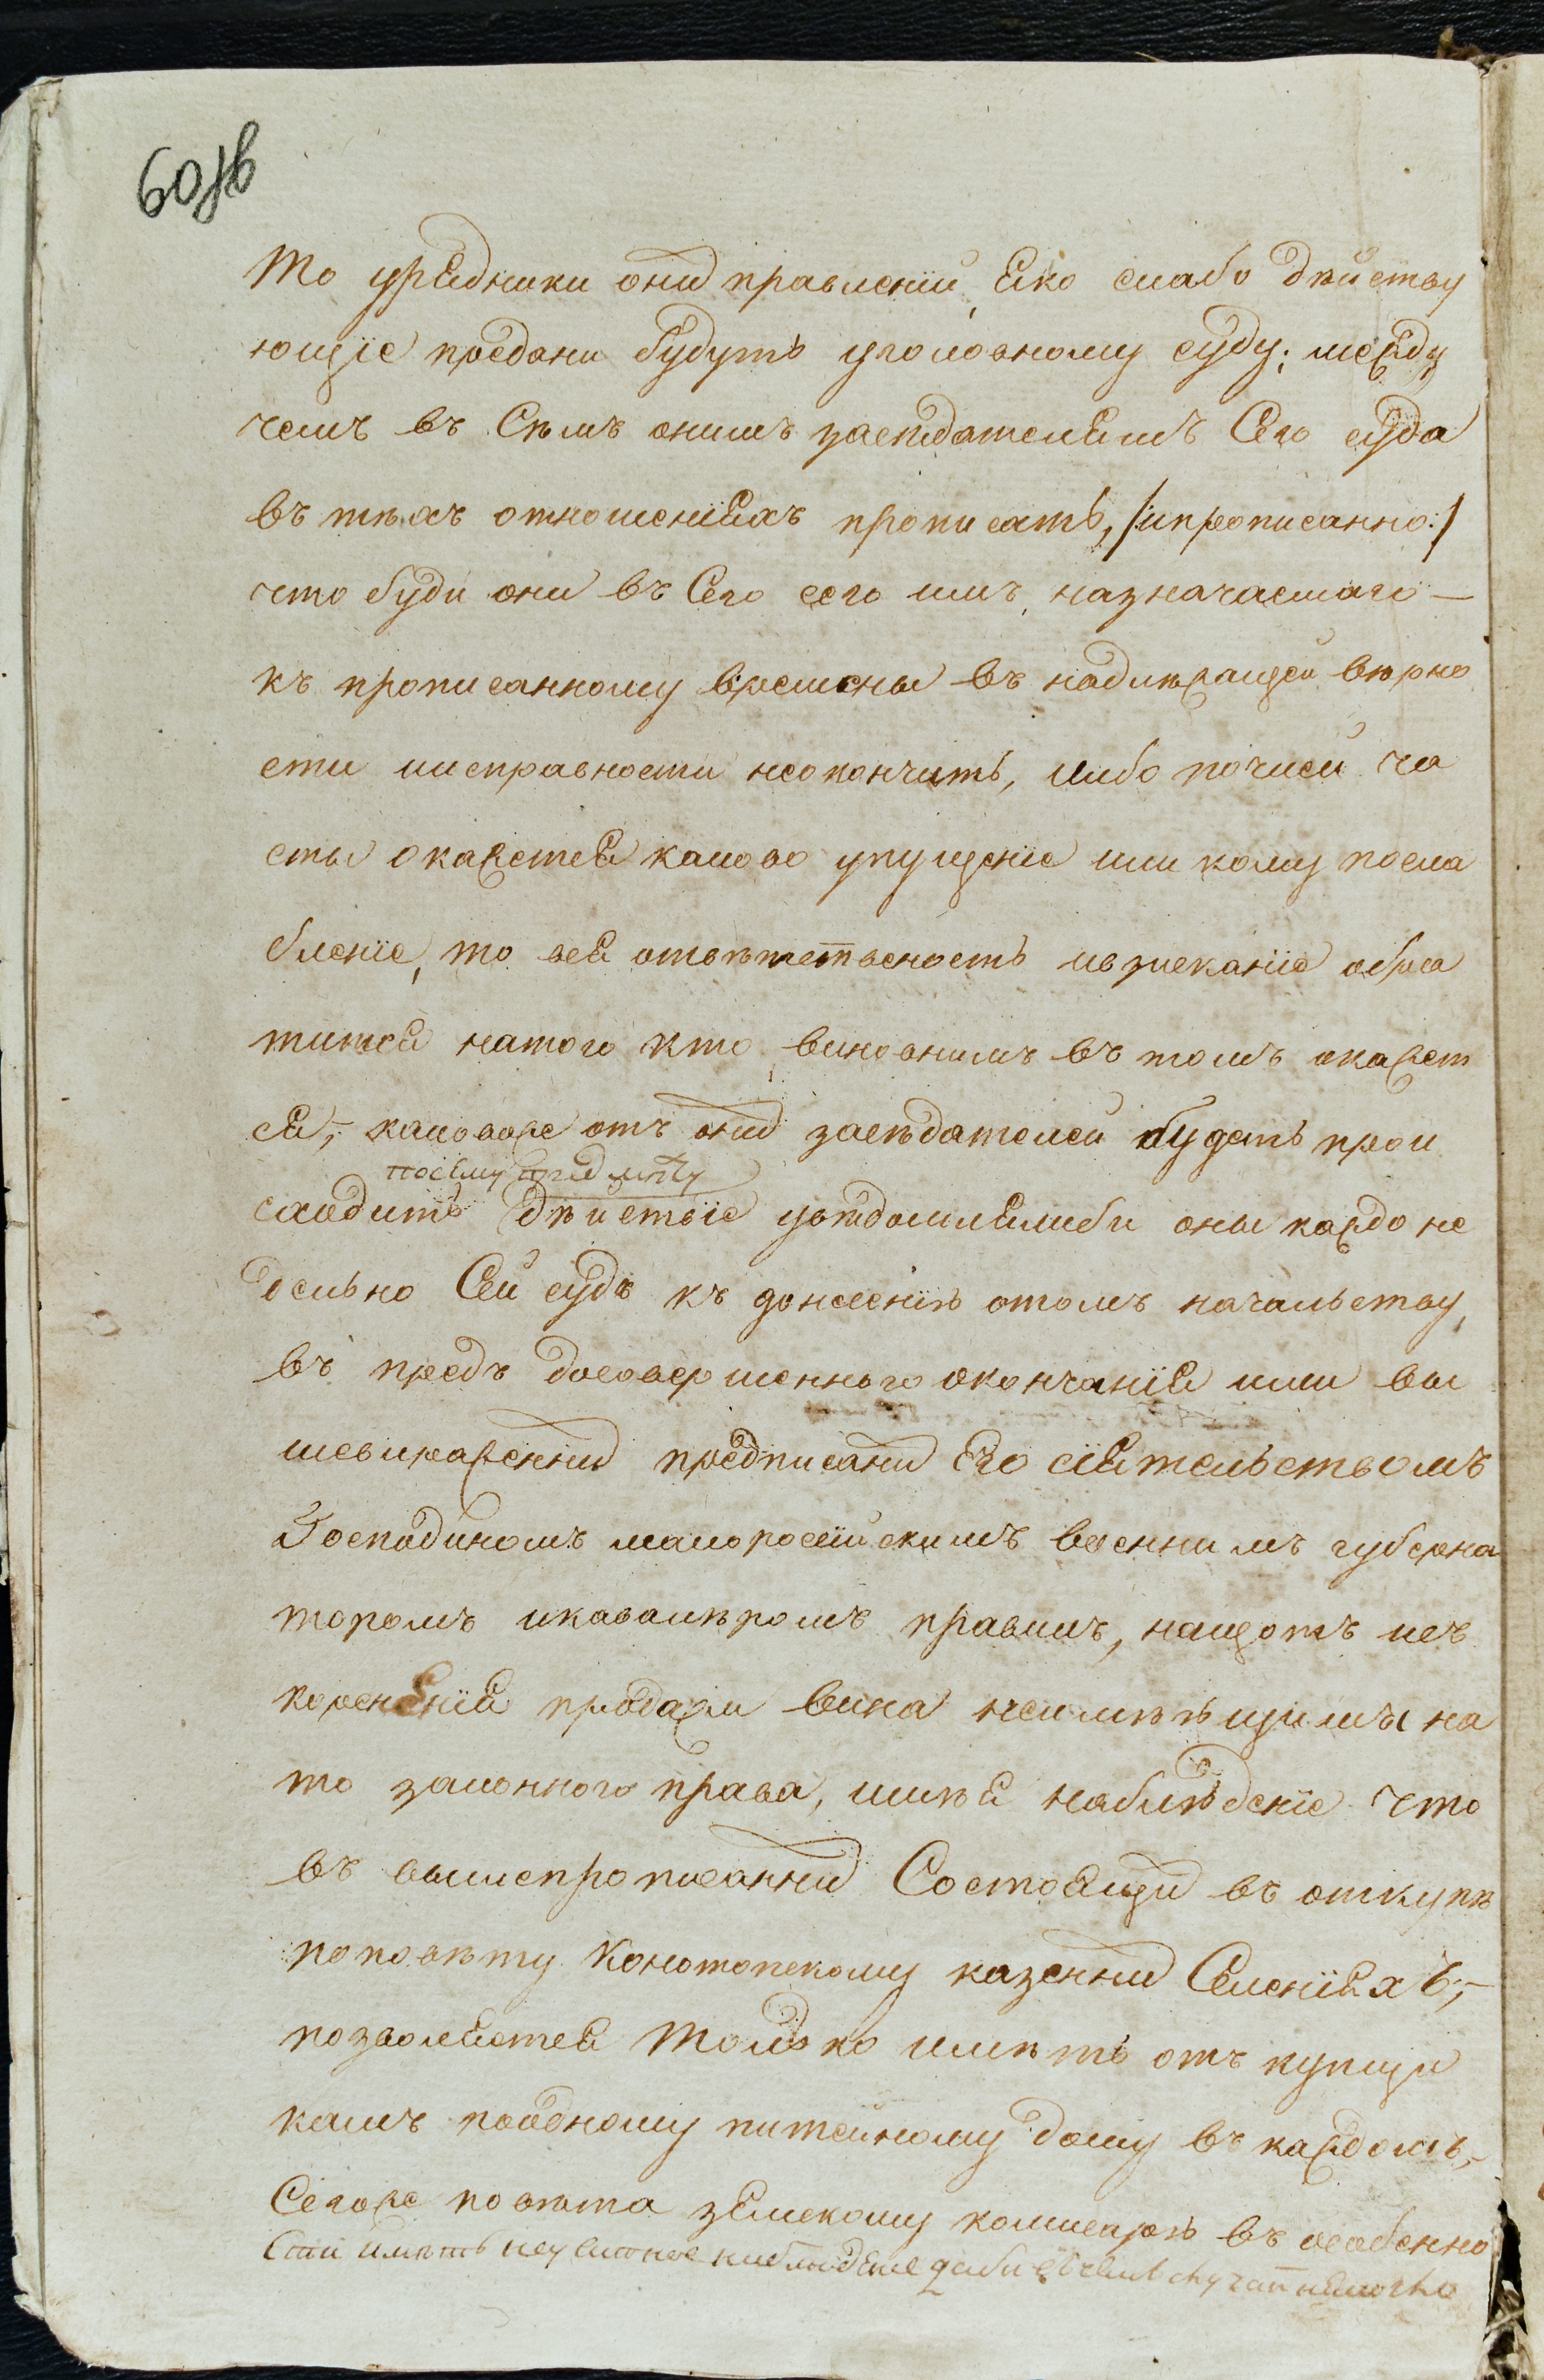 60 зв
то урядники онихъ правленій, яко слабо дѣйству
ющіе преданы будутъ уголовному суду; между
чемъ въ Сѣмъ онимъ засѣдателямъ Сего суда
въ тѣхъ отношеніяхъ прописать, /:и прописанно:/
что буди они въ Сего всего имъ назначаемаго —
къ прописанному времены въ надлѣжащей вѣрно
сти иисправности неокончить, либо почией ча
сты окажется каково упущеніе или кому посла
бленіе, то вся отвѣтственность ивзисканіе обра
тится натого кто виновнимъ въ томъ окажет
ся, каковоже отъ онихъ засѣдателей будетъ прои
посему предмѣту
сходить дѣйствіе увѣдомлялиби оны каждо не
делъно Сей судъ къ донесенію отомъ начальству,
въ предъ досовершенного окончанія или вы
шевираженнихъ предписанихъ Его сіятельствомъ
Господиномъ малоросійскимъ военнимъ губерна
торомъ икавалѣромъ правилъ, нащотъ иск
корененія продажи вина неимѣющимъ на
то законного права, имѣя наблюденіе что
въ вишепрописаннихъ Состоящихъ въ откупѣ
поповѣту Конотопскому казеннихъ Селеніяхъ,
позволяется только имѣть отъ купщи
камъ поодному питейному дому въ каждомъ,
Сегоже повѣта земскому коммисарю въ особенно
сти имѣть неусипное наблюденіе даби въ чемъ случатнемогло